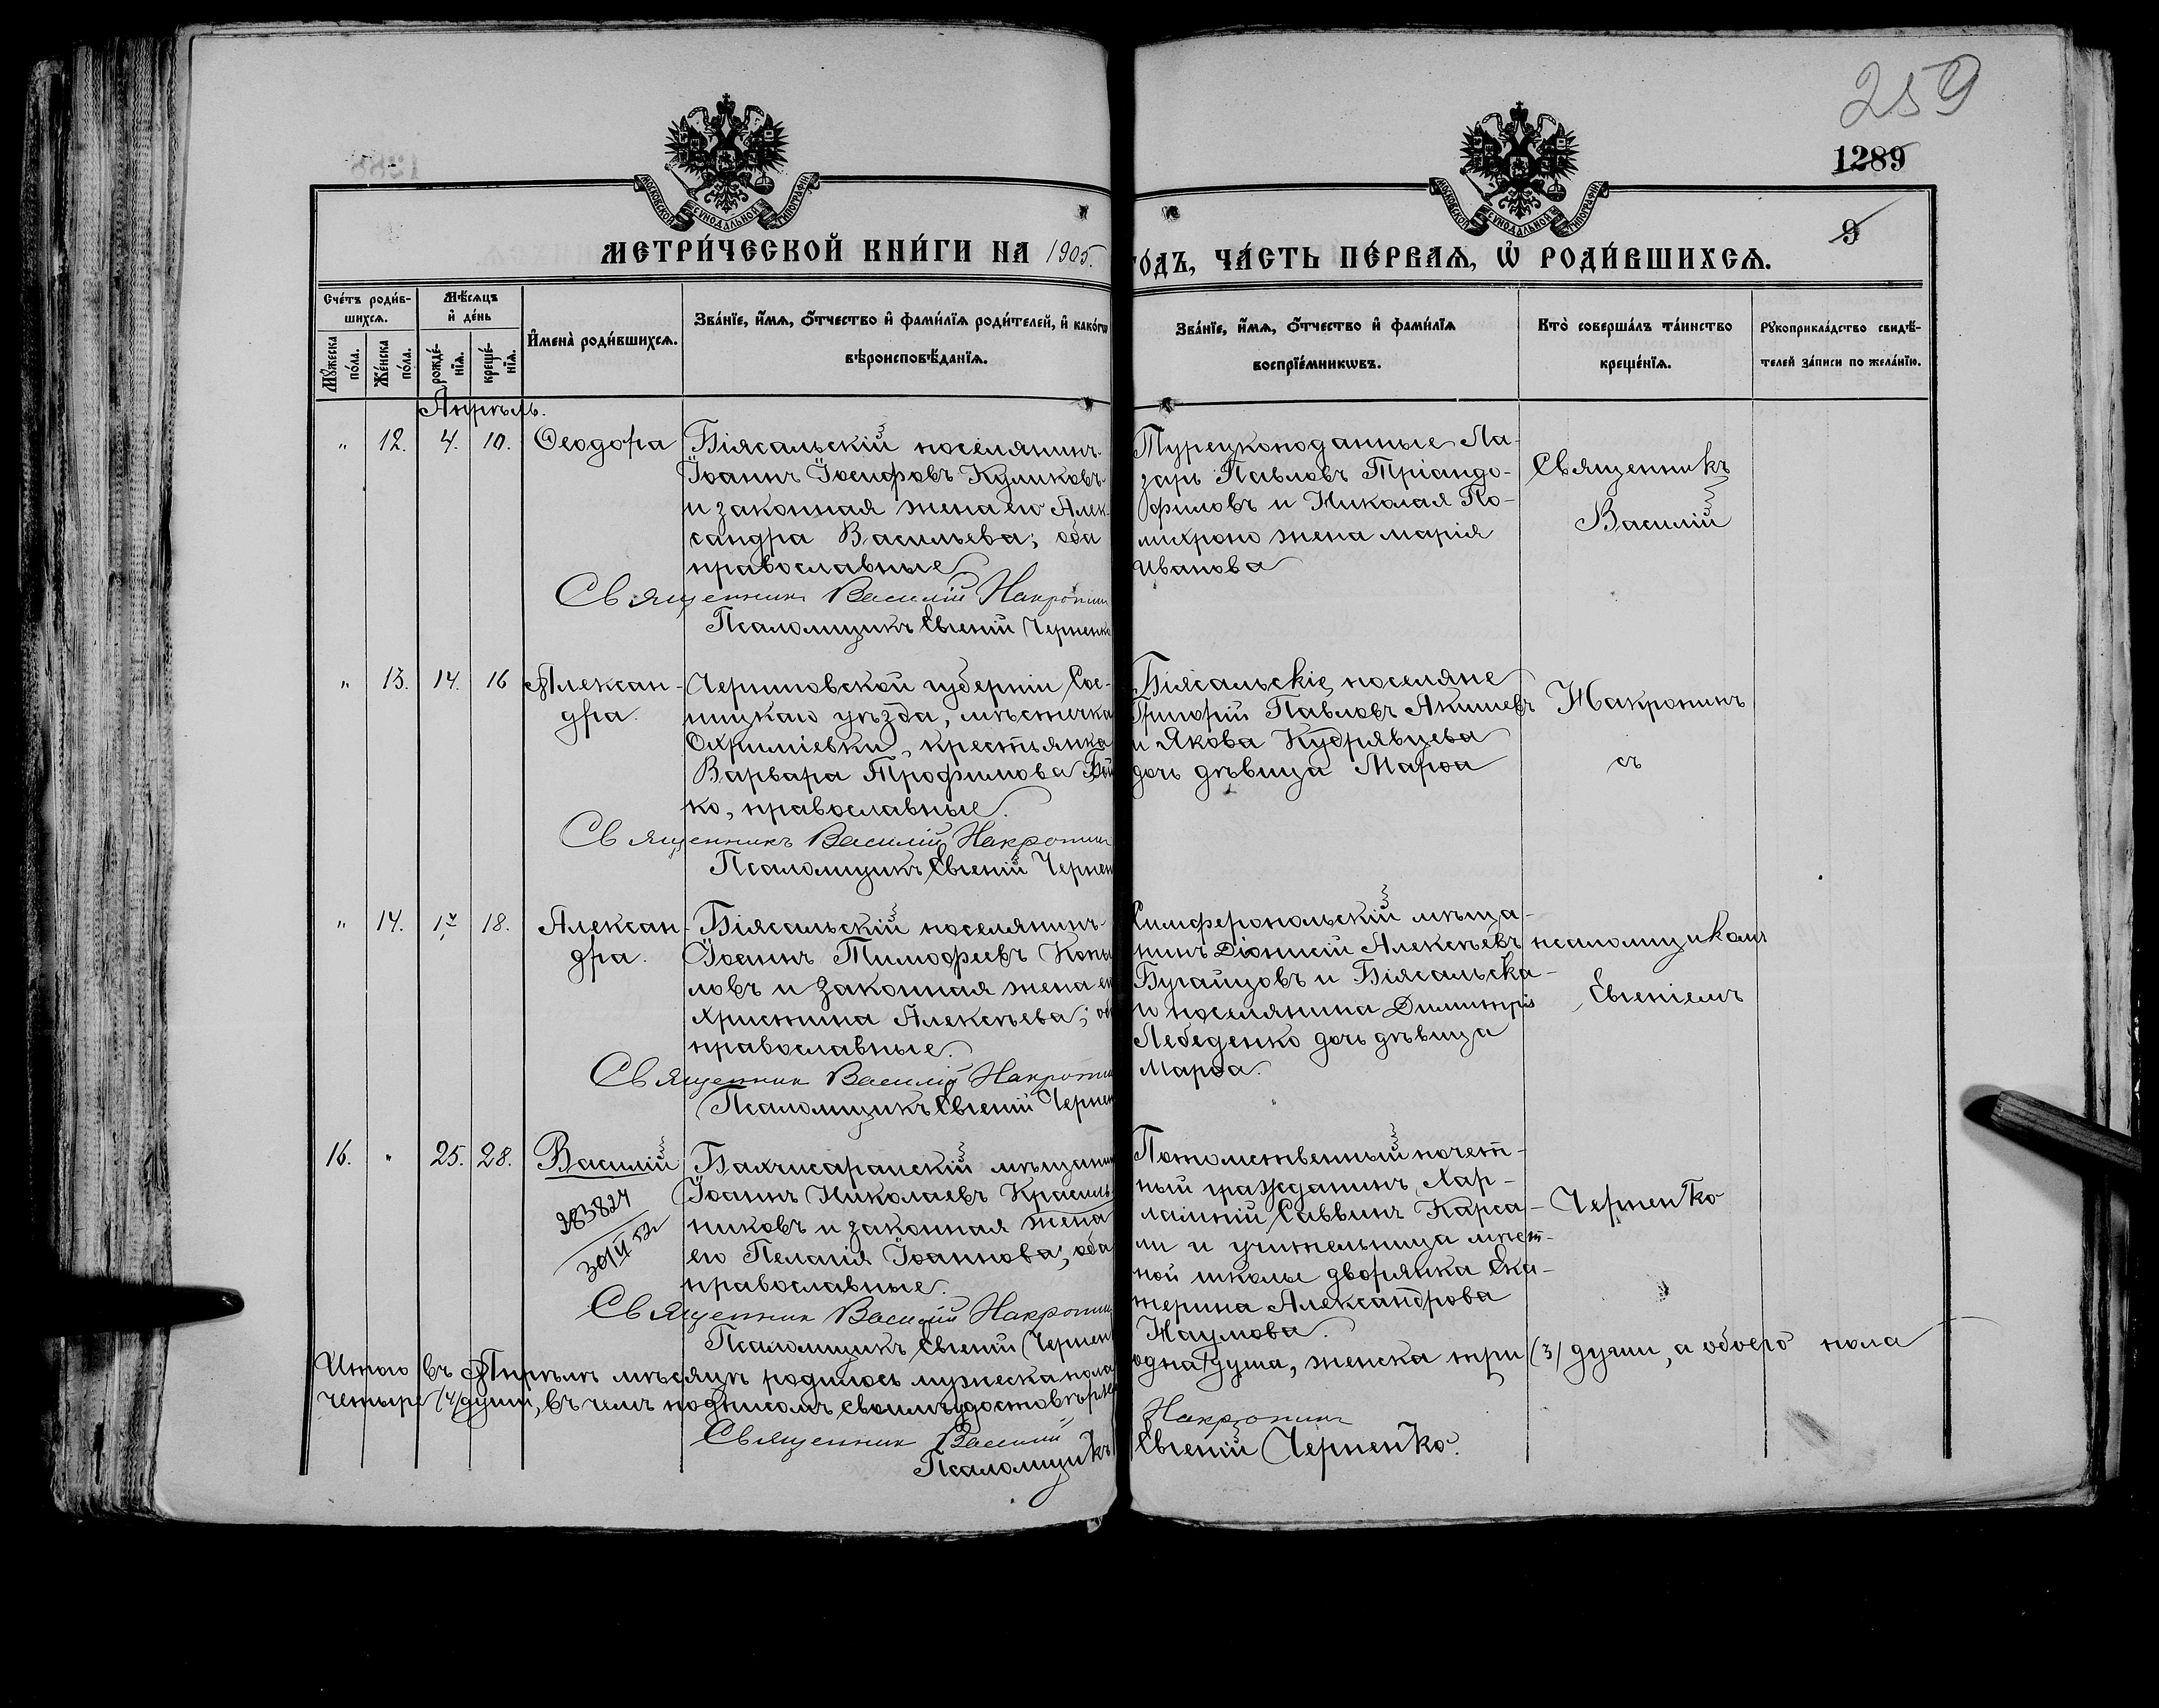 259
1289
9
МОСКОВСКОЙ СѴНОДАЛЬНОЙ ТИПОГРАФІИ
МОСКОВСКОЙ СѴНОДАЛЬНОЙ ТИПОГРАФІИ
МЕТРИ́ЧЕСКОЙ КНИ́ГИ НА 1905.
го́дъ, ЧА́СТЬ ПЕ́РВАѦ, Ѽ РОДИ́ВШИХСѦ.
Сче́тъ роди́в-
шихсѧ.
Мꙋжеска по́ла.
Же́нска по́ла.
Мѣ́сѧцъ
и҆ де́нь
рожде́-
нїѧ.
креще́-
нїѧ.
И҆мена̀ роди́вшихсѧ.
Зва́нїе, и҆́мѧ, ѻ҆́тчество и҆ фами́лїѧ роди́телей, и҆ како́гѡ
вѣроисповѣ́данїѧ.
Зва́нїе, и҆́мѧ, ѻ҆́тчество и҆ фами́лїѧ
воспрїе́мникѡвъ.
Кто̀ соверша́лъ та́инство
креще́нїѧ.
Рꙋкоприкла́дство свидѣ́-
телей за́писи по жела́нїю.
Апрѣль.
" 12. 4. 10. Ѳеодора
Біясальскій поселянинъ
Іоаннъ Іосифовъ Куликовъ
и законная жена его Алек-
сандра Васильева; оба
православные
Священникъ Василій Накропин
Псаломщикъ Евгеній Черненко
Турецкоподанные Ла-
зарь Павловъ Тріандо-
филовъ и Николая По-
лихроно жена марія
Иванова
Священникъ
Василій
" 13. 14. 16 Алексан-
дра.
Черниговской губерніи Сос-
ницкаго уѣзда, мѣстечка
Охриміевки, крестьянка
Варвара Трофимова Бой
ко, православные.
Священникъ Василій Накропин
Псаломщикъ Евгеній Чернен
Біясальскіе поселяне
Григорій Павловъ Акишевъ
и Якова Кудрявцева
дочь дѣвица Марѳа
Накропинъ
съ
" 14. 17 18. Алексан-
дра.
Біясальскій поселянинъ
Іоаннъ Тимофеевъ Копы
ловъ и законная жена ег
Христина Алексѣева; об
православные.
Священник Василій Накропин
Псаломщикъ Евгеній Чернен
Симферопольскій мѣща-
нинъ Діонисій Алексѣевъ
Бугайцовъ и Біясальска-
го поселянина Димитрія
Лебеденко дочь дѣвица
Марѳа.
псаломщикомъ
Евгеніемъ
16. " 25. 28. Василій
283824
30/II 52г
Бахчисарайскій мѣщанин
Іоаннъ Николаевъ Красиль
никовъ и законная жена
его Пелагія Іоаннова; оба
православные.
Священник Василій Накропин
Псаломщикъ Евгеній Чернен
Потомственный почет-
ный гражданинъ Хар-
лампій Саввинъ Карса-
ли и учительница мѣст-
ной школы дворянка Ека-
терина Александрова
Наумова.
Черненко
Итого въ Апрѣлѣ мѣсяцѣ родилось мужеска пола одна душа, женска три (3) души, а обоего пола
четыре (4) души, въ чемъ подписомъ своимъ удостовѣряе
Священник Василій Накропинъ
Псаломщикъ Евгеній Черненко.